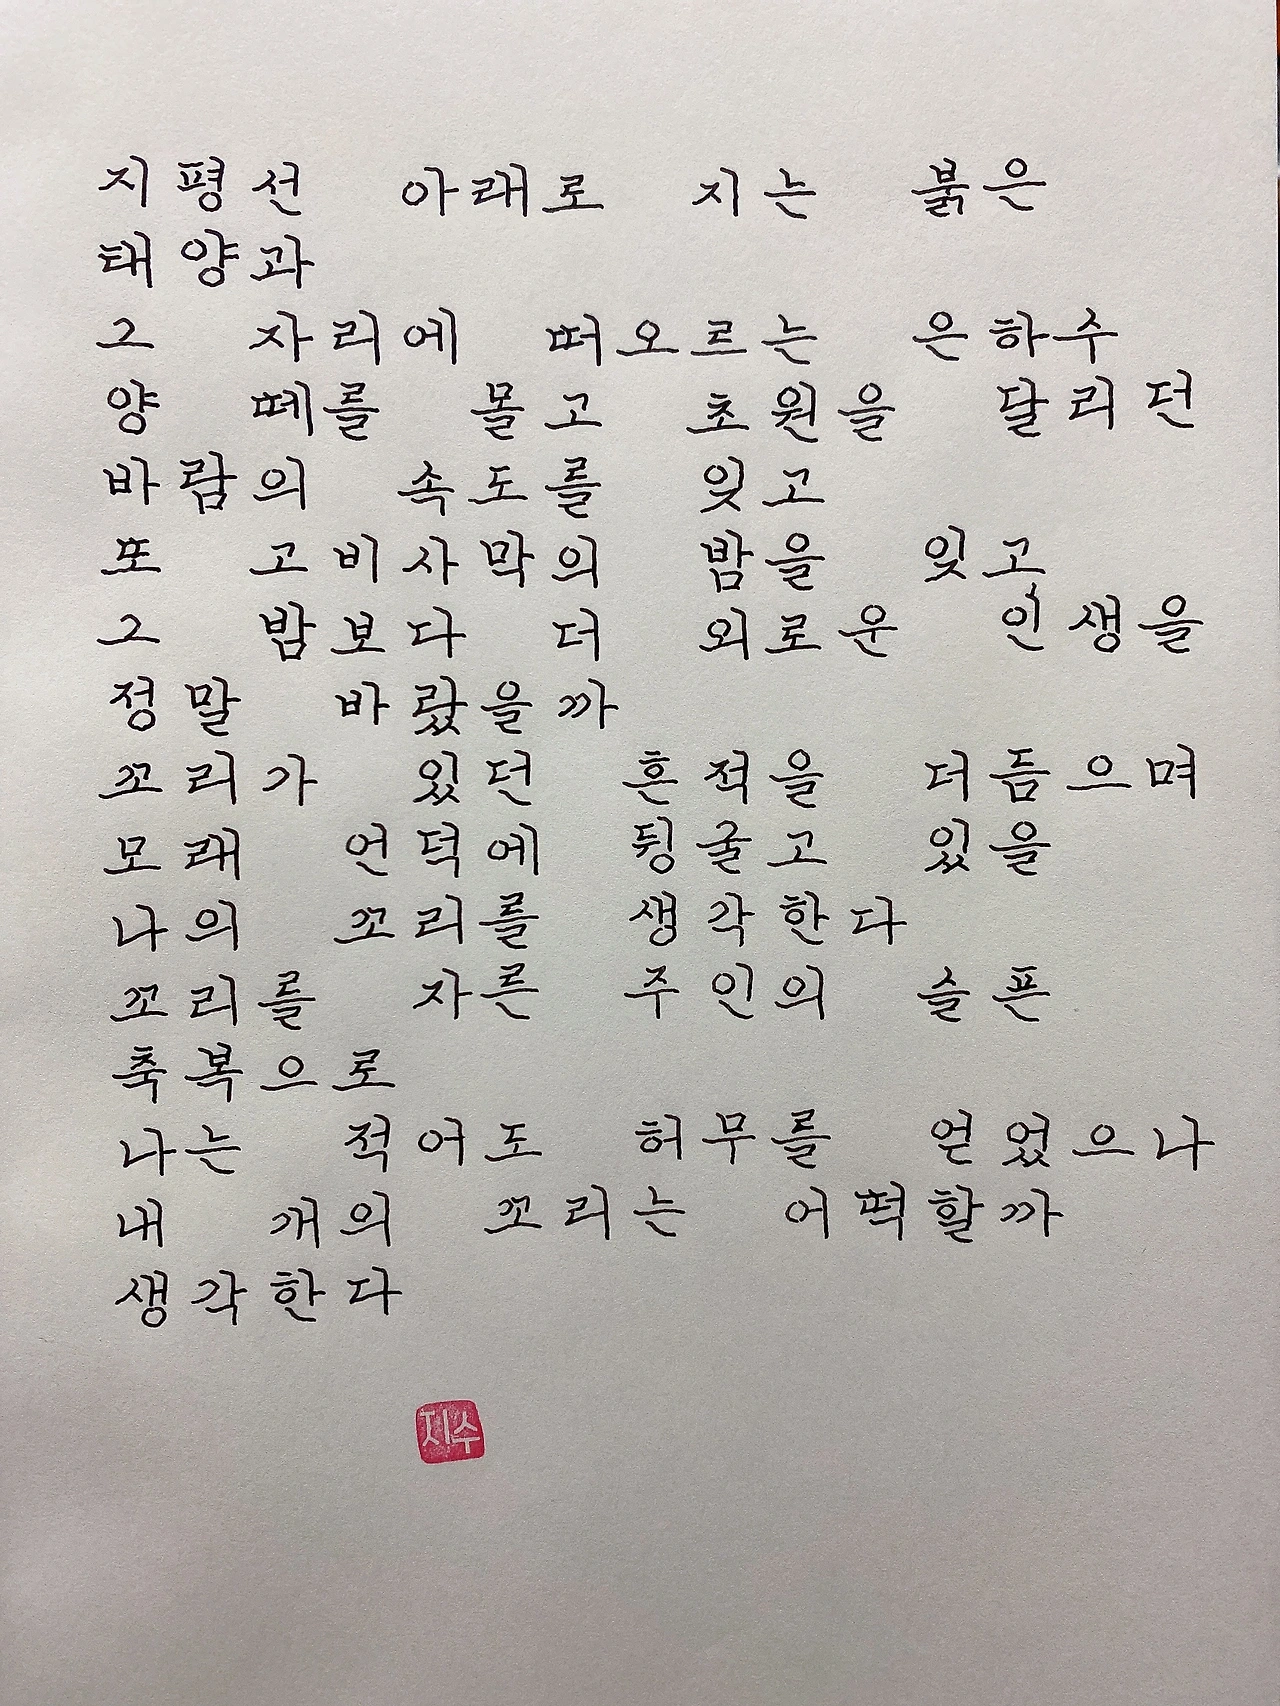 지평선 아래로 지는 붉은
태양과
그 자리에 떠오르는 은하수
양 떼를 몰고 초원을 달리던
바람의 속도를 잊고
또 고비사막의 밤을 잊고
그 밤보다 더 외로운 인생을
정말 바랐을까
꼬리가 있던 흔적을 더듬으며
모래 언덕에 뒹굴고 있을
나의 꼬리를 생각한다
꼬리를 자른 주인의 슬픈
축복으로
나는 적어도 허무를 얻었으나
내 개의 꼬리는 어떡할까
생각한다
지수